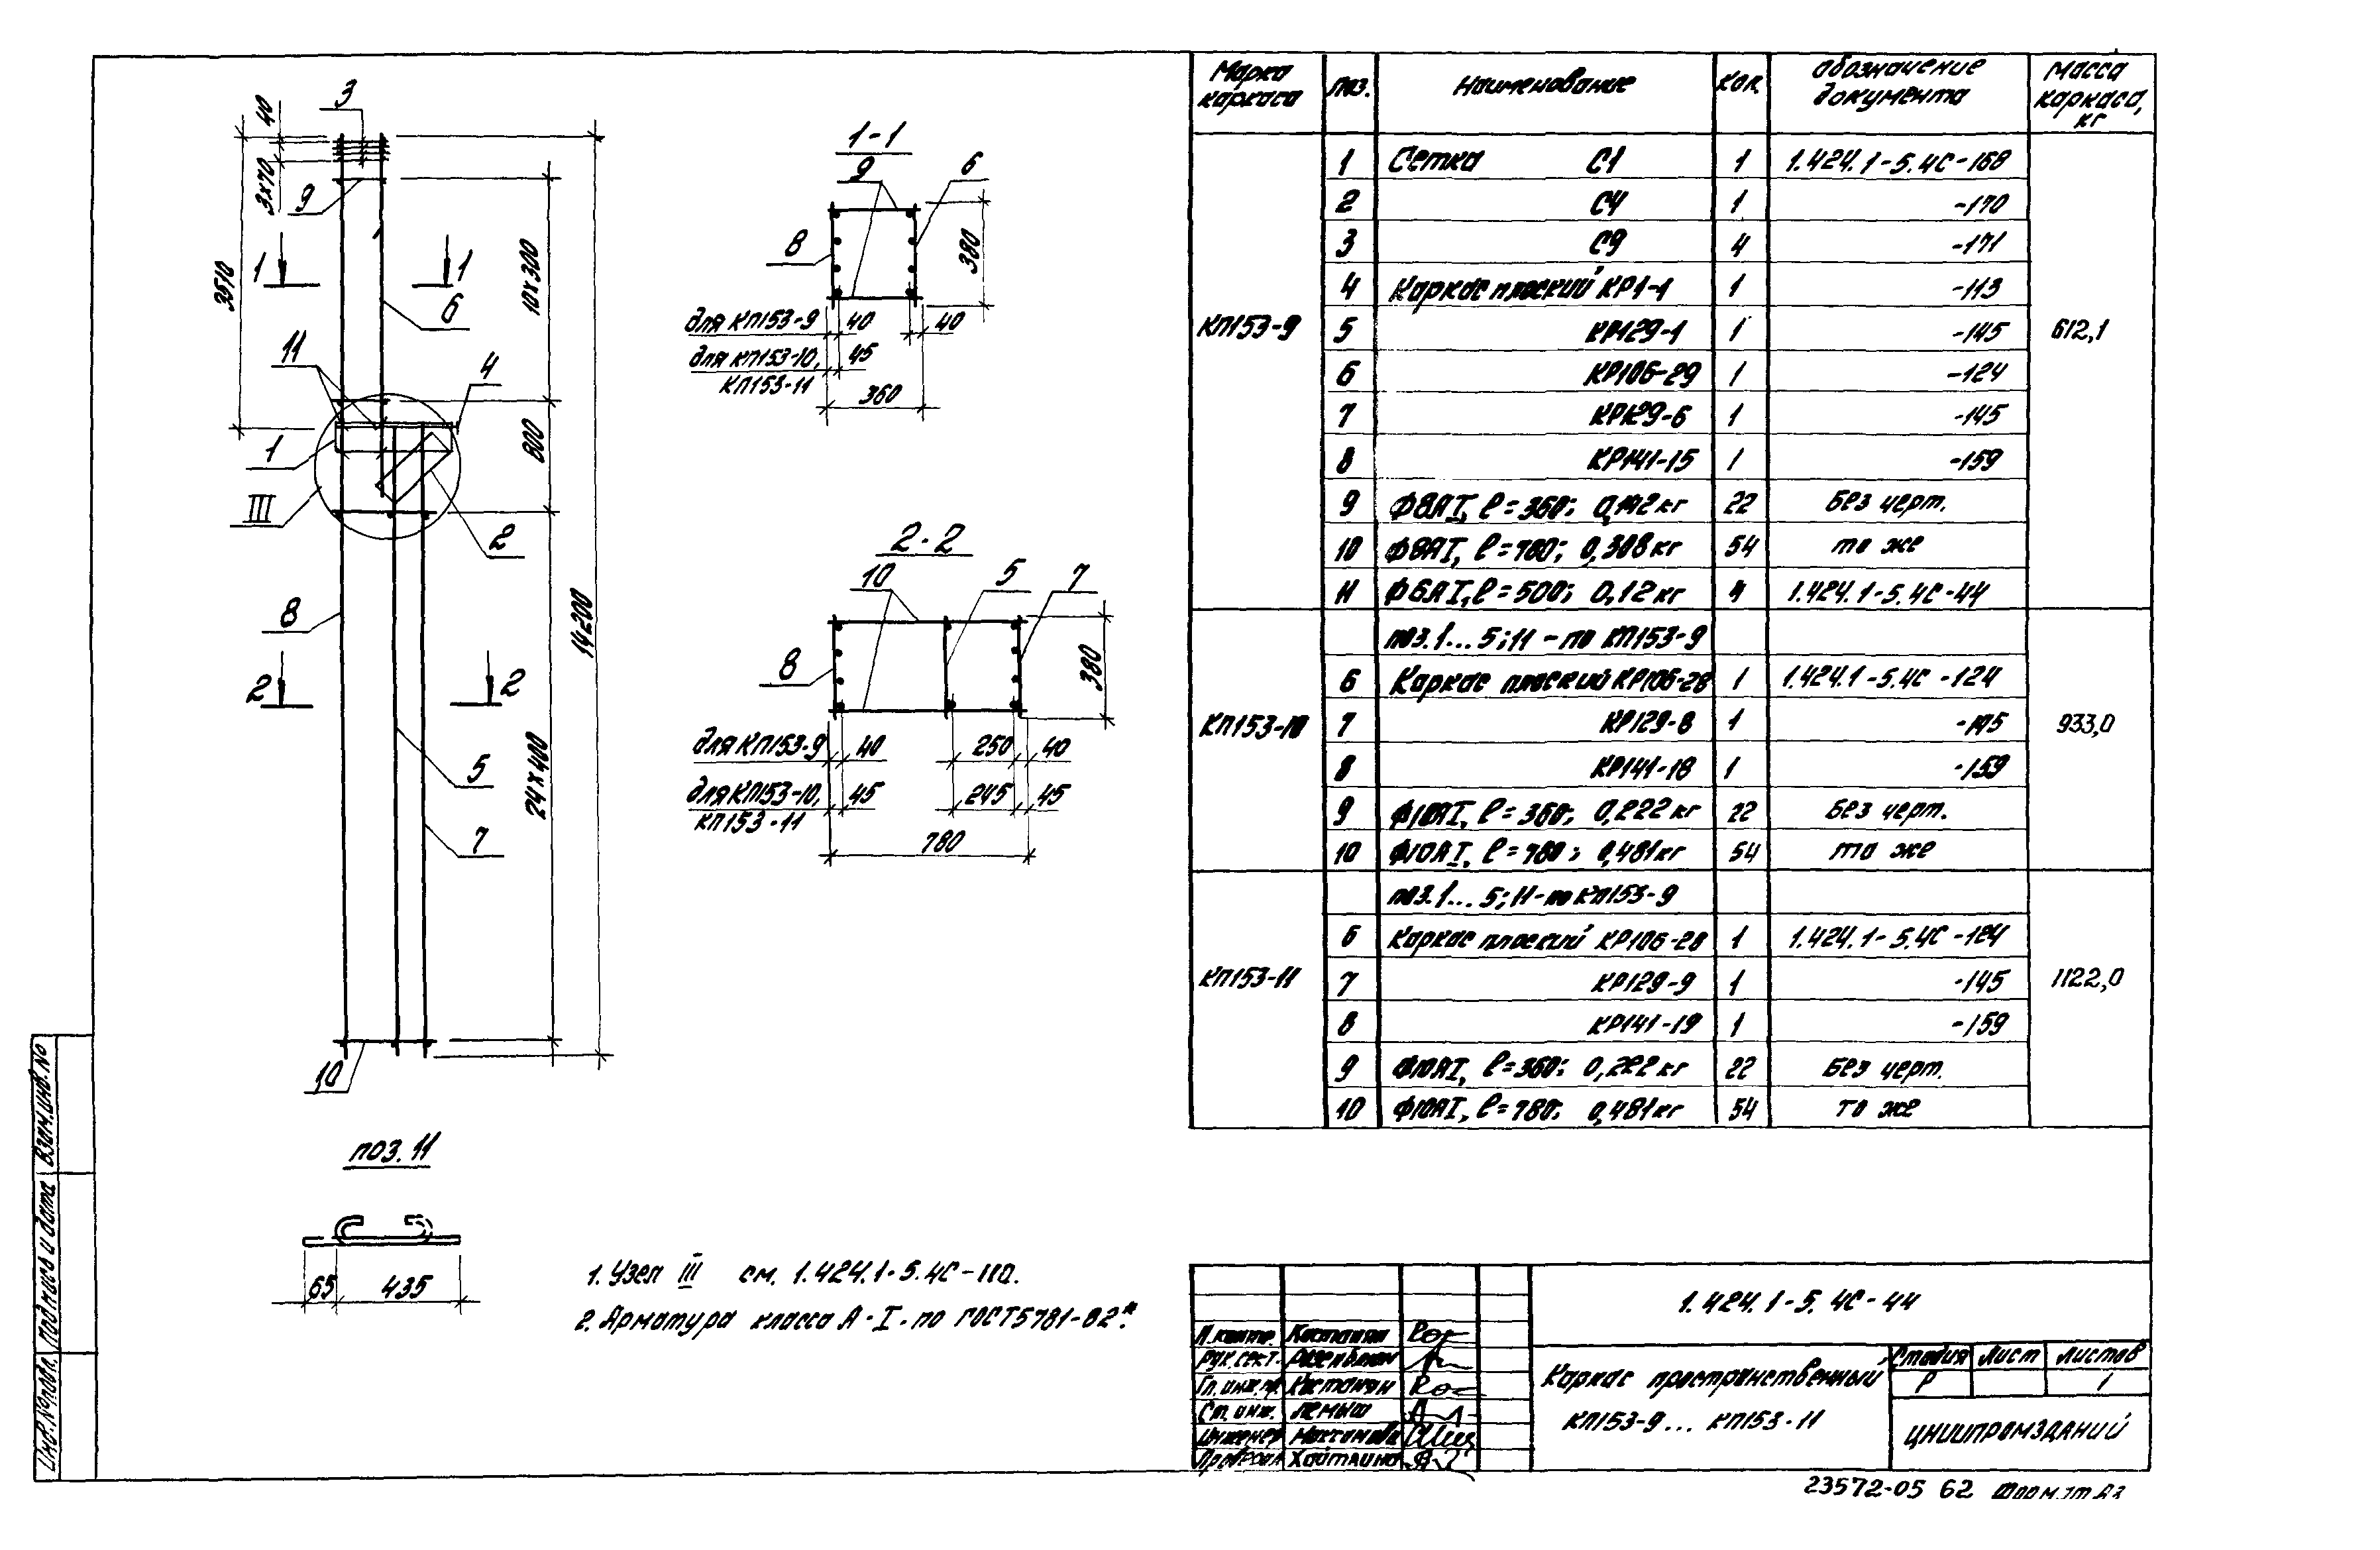 3
40
3х70
9
3510
1
1
6
10х300
11
4
1
III
800
2
8
14200
2
2
5
24х400
7
10
1-1
9
6
8
380
для КП153-9 40 40
для КП153-10, 45
КП153-11
360
2-2
10 5 7
8
380
для КП153-9 40 250 40
для КП153-10, 45 245 45
КП153-11
780
поз. 11
65 435
1. Узел III см. 1.424.1-5.4С-110.
2. Арматура класса А-I-по ГОСТ5781-82*.
Марка каркаса Поз. Наименование Кол. Обозначение документа Масса каркаса, кг
КП153-9 612,1
1 Сетка С1 1 1.424.1-5.4С-168
2 С4 1 -170
3 С9 4 -171
4 Каркас плоский КР1-1 1 -113
5 КР129-1 1 -145
6 КР106-29 1 -124
7 КР129-6 1 -145
8 КР141-15 1 -159
9 Ф8АI, ℓ=360; 0,142кг 22 Без черт.
10 Ф8АI, ℓ=780; 0,308кг 54 то же
11 Ф6АI, ℓ=500; 0,12кг 4 1.424.1-5.4С-44
поз.1...5;11-по КП153-9
КП153-10 933,0
6 Каркас плоский КР106-28 1 1.424.1-5.4С-124
7 КР129-8 1 -145
8 КР141-18 1 -159
9 Ф10АI, ℓ=360; 0,222кг 22 Без черт.
10 Ф10АI, ℓ=780; 0,481кг 54 то же
поз.1...5;11-по КП153-9
КП153-11 1122,0
6 Каркас плоский КР106-28 1 1.424.1-5.4С-124
7 КР129-9 1 -145
8 КР141-19 1 -159
9 Ф10АI, ℓ=360; 0,222кг 22 Без черт.
10 Ф10АI, ℓ=780; 0,481кг 54 то же
1.424.1-5.4С-44
Н.контр. Костанян
Рук.сект. Розенблюм
Гл.инж.пр. Костанян
Ст.инж. Лемыш
Инженер
Проверил
Каркас пространственный
КП153-9... КП153-11
Стадия Лист Листов
Р 1
ЦНИИПРОМЗДАНИЙ
23572-05 62 Формат А3
Инв.№подл. Подпись и дата Взам.инв.№